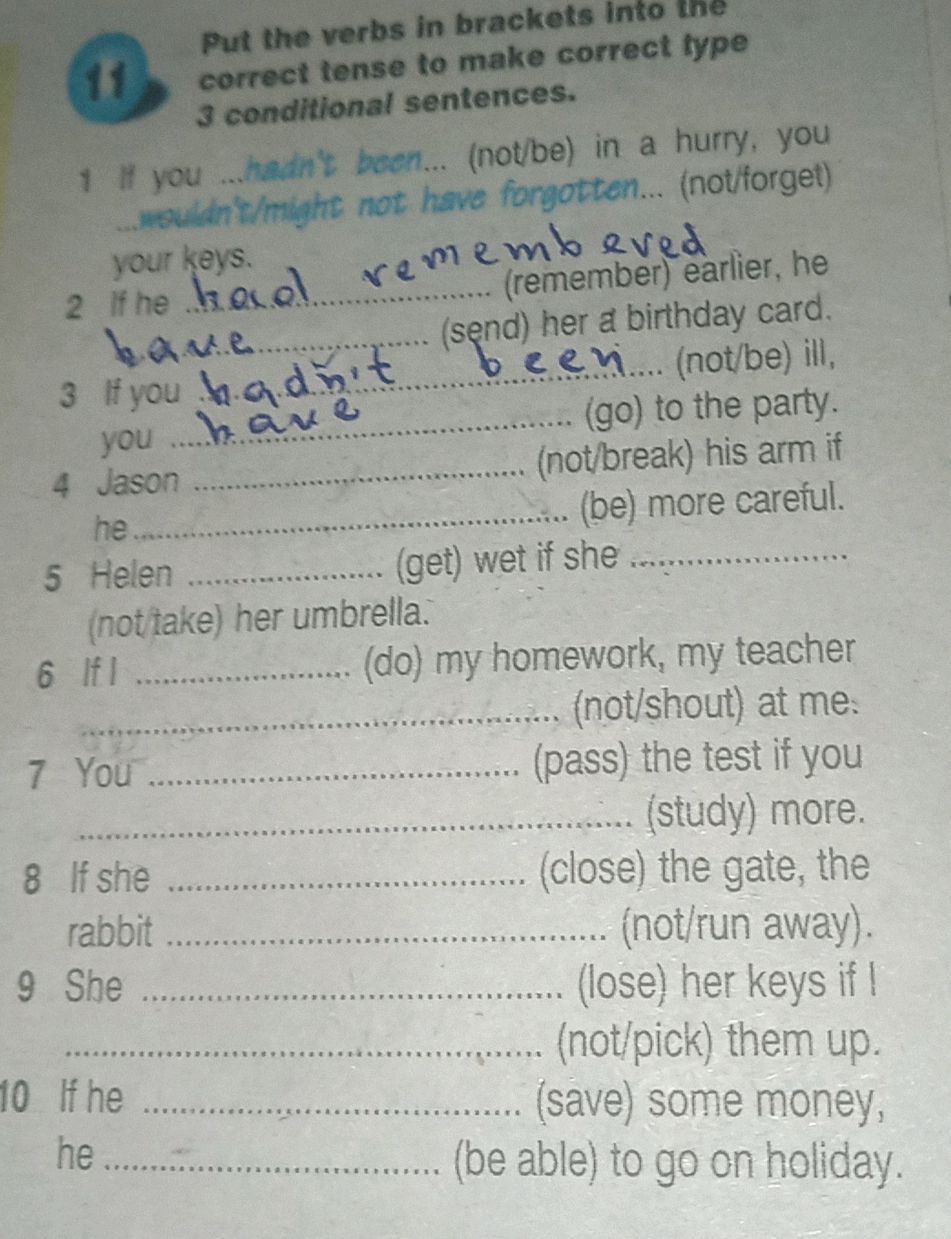 Put the verbs in brackets into the
11 correct tense to make correct type
3 conditional sentences.
1 If you ...hadn't been... (not/be) in a hurry, you
...wouldn't/might not have forgotten... (not/forget)
your keys.
2 If he had remembered (remember) earlier, he
have (send) her a birthday card.
3 If you hadn't been (not/be) ill,
you have (go) to the party.
4 Jason .................... (not/break) his arm if
he .................... (be) more careful.
5 Helen .................... (get) wet if she ....................
(not/take) her umbrella.
6 If I .................... (do) my homework, my teacher
.................... (not/shout) at me.
7 You .................... (pass) the test if you
.................... (study) more.
8 If she .................... (close) the gate, the
rabbit .................... (not/run away).
9 She .................... (lose) her keys if I
.................... (not/pick) them up.
10 If he .................... (save) some money,
he .................... (be able) to go on holiday.